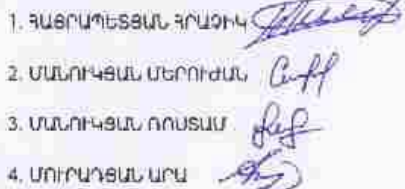 1. ՀԱՅՐԱՊԵՏՅԱՆ ՀՐԱՉԻԿ
2. ՄԱՆՈՒԿՅԱՆ ՄԵՐՈՒԺԱՆ
3. ՄԱՆՈՒԿՅԱՆ ՌՈՍՏԱՄ
4. ՄՈՒՐԱԴՅԱՆ ԱՐԱ